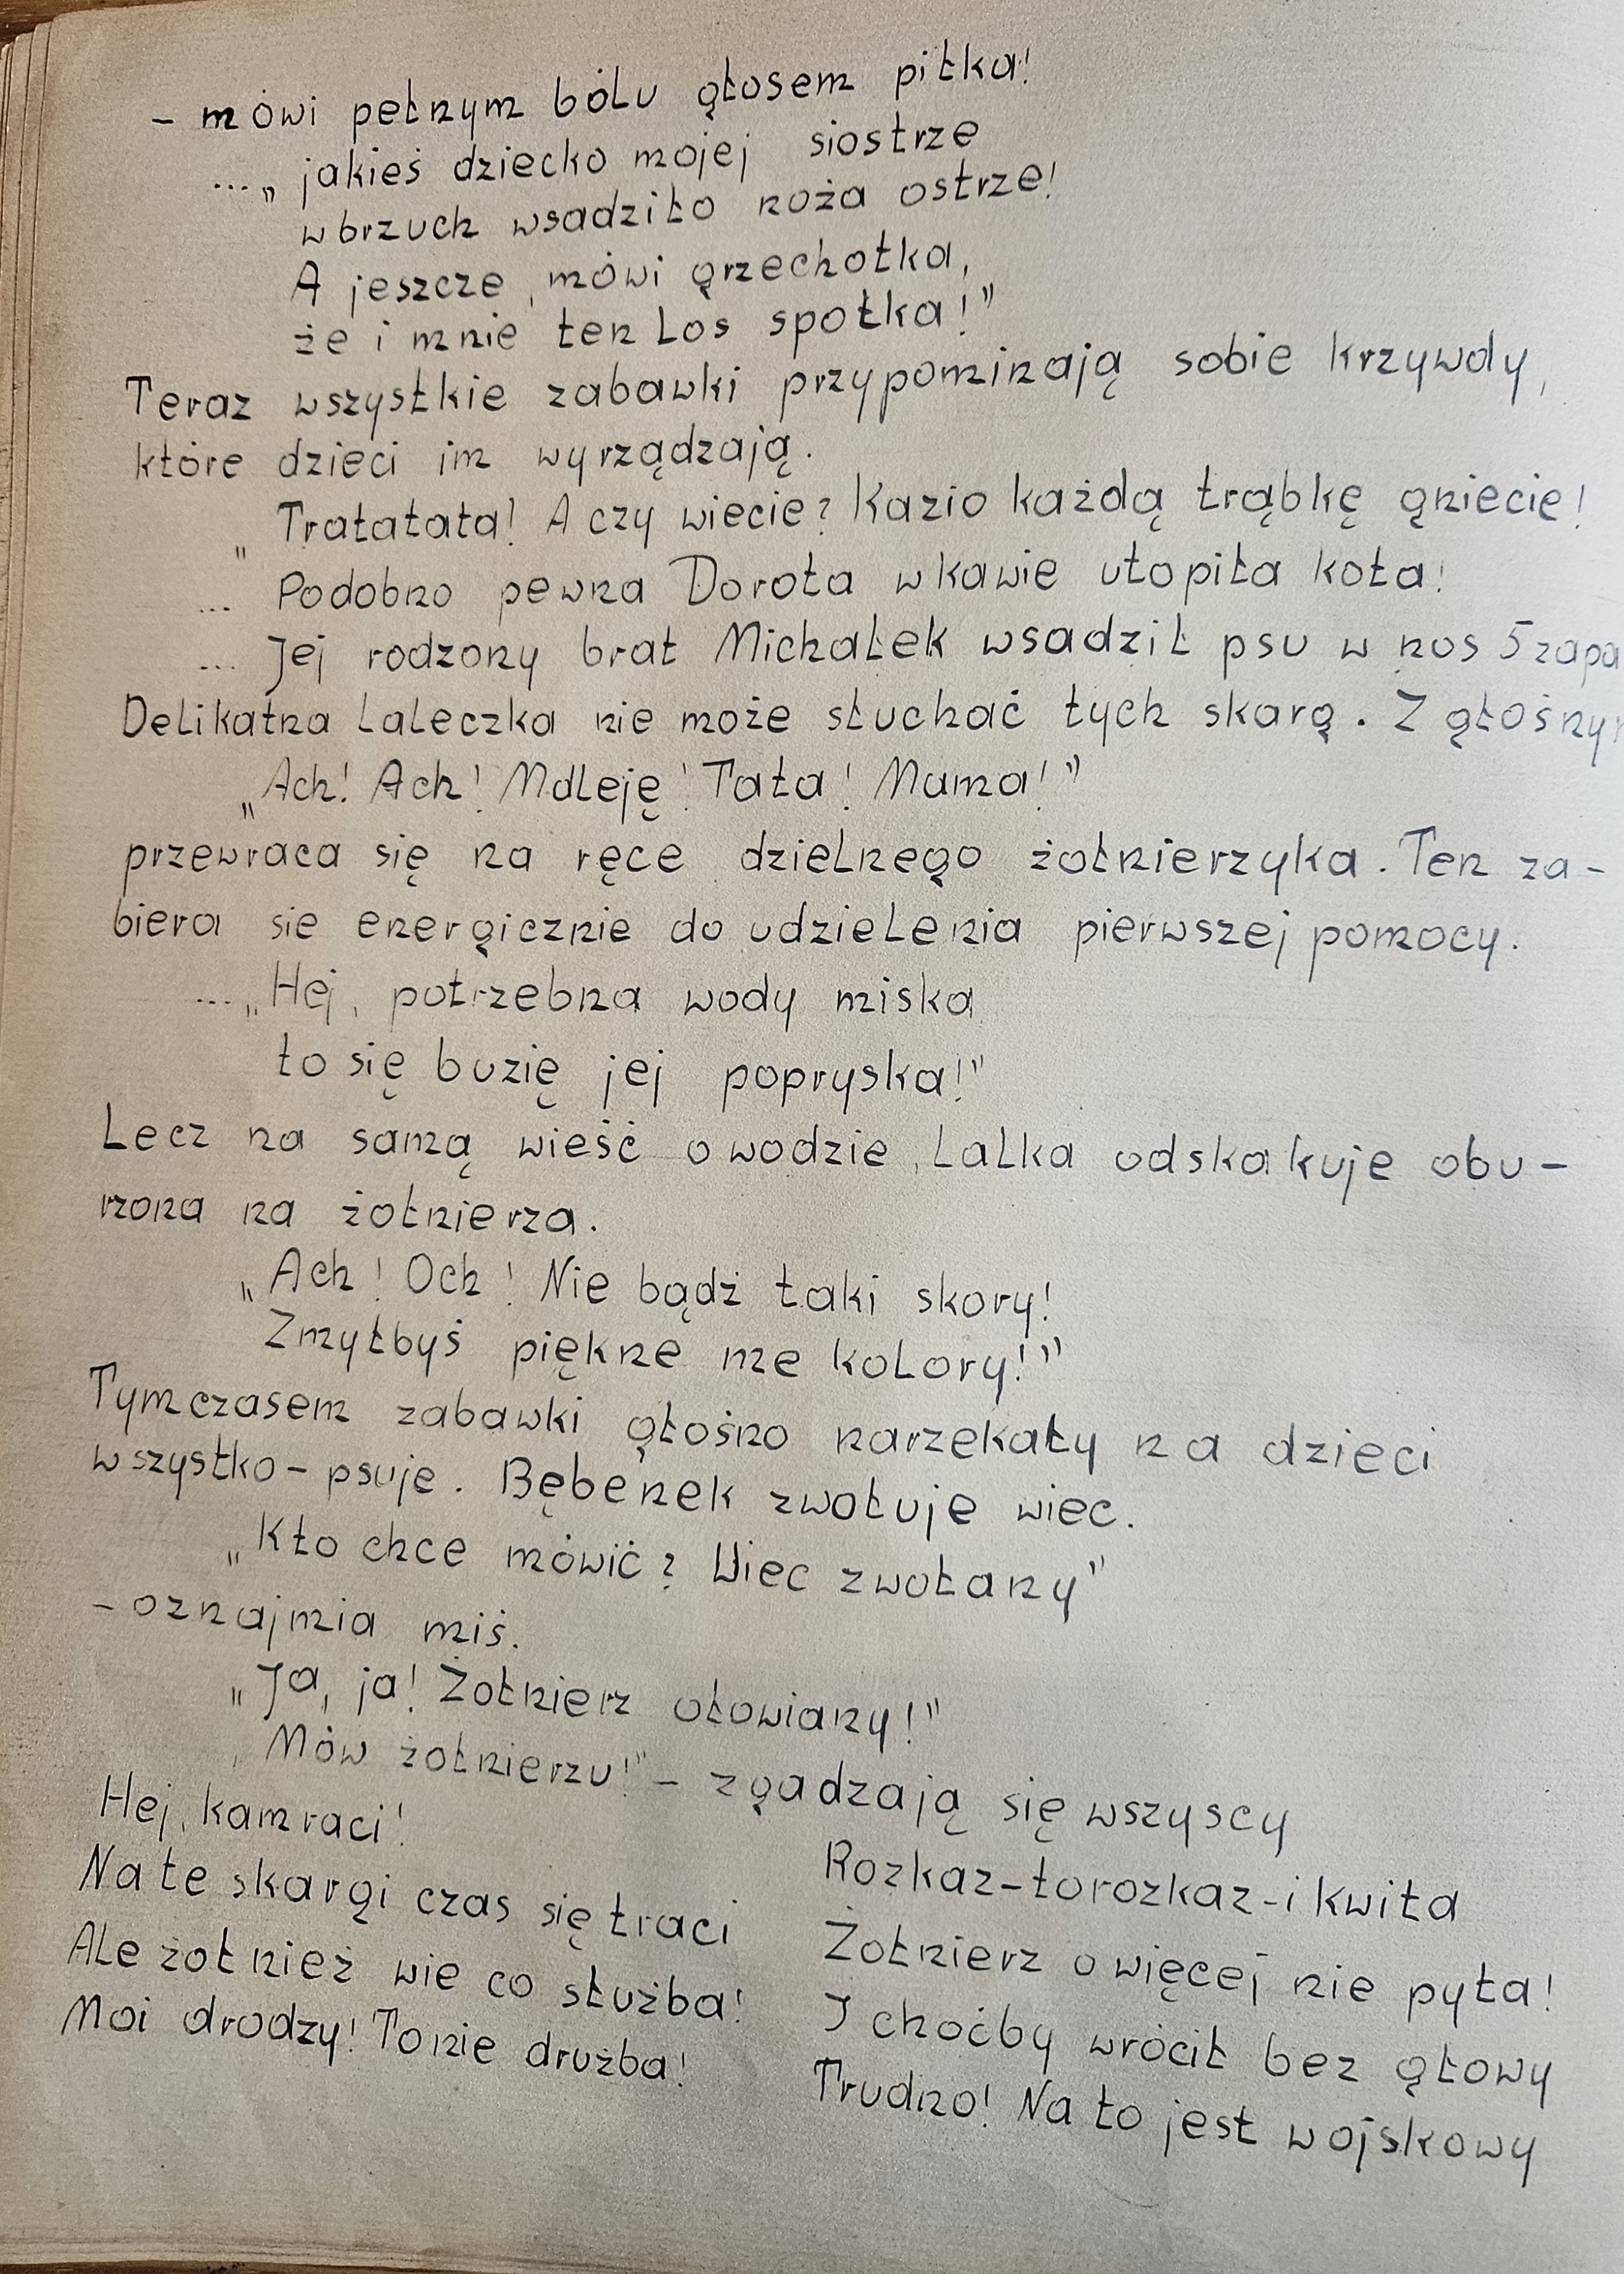 - mówi pełnym bólu głosem piłka!
..."jakieś dziecko mojej siostrze
w brzuch wsadziło noża ostrze!
A jeszcze, mówi grzechotka,
że i mnie ten los spotka!"
Teraz wszystkie zabawki przypominają sobie krzywdy,
które dzieci im wyrządzają.
„Tratatata! A czy wiecie? Kazio każdą trąbkę gniecie!
... Podobno pewna Dorota w kawie utopiła kota!
... Jej rodzony brat Michałek wsadził psu w nos 5 zapa
Delikatna laleczka nie może słuchać tych skarg. Z głośnym
„Ach! Ach! Mdleję! Tata! Mama!"
przewraca się na ręce dzielnego żołnierzyka. Ten za-
biera sie energicznie do udzielenia pierwszej pomocy.
...„Hej, potrzebna wody miska
to się buzię jej popryska!"
Lecz na samą wieść o wodzie, lalka odskakuje obu-
rzona na żołnierza.
„Ach! Och! Nie bądź taki skory!
Zmyłbyś piękne me kolory!"
Tymczasem zabawki głośno narzekały na dzieci
wszystko-psuje. Bębenek zwołuje wiec.
„Kto chce mówić? Wiec zwołany"
- oznajmia miś.
„Ja, ja! Żołnierz ołowiany!"
„Mów żołnierzu!" - zgadzają się wszyscy
Hej, kamraci!
Na te skargi czas się traci
Ale żołnież wie co służba!
Moi drodzy! To nie drużba!
Rozkaz-to rozkaz-i kwita
Żołnierz o więcej nie pyta!
I choćby wrócił bez głowy
Trudno! Na to jest wojskowy